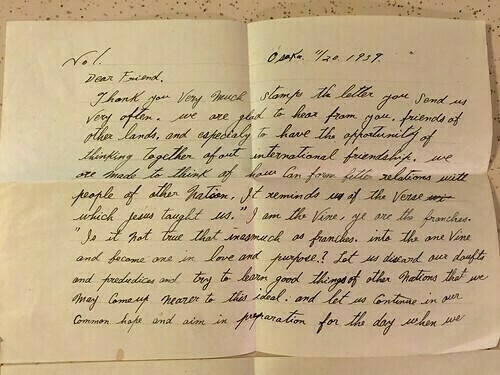 No 1.
Osaka. 11/20. 1939.
Dear Friend,
Thank you Very Much stamps the letter you Send us
Very often. we are glad to hear from you. friends of
other lands, and especialy to have the opportunity of
thinking together about international friendship. we
are made to think of how Can form relations with
people of other Nation. It reminds us of the Verse
which jesus taught us. "I am the Vine, ye are the franches.
"Is it Not true that inasmuch as franches. into the one Vine
and become one in love and purpose? Let us discard our doufts
and predudices and try to learn good things of other Nations that we
may Come up Nearer to this ideal. and let us Continue in our
Common hope and aim in preparation for the day when we